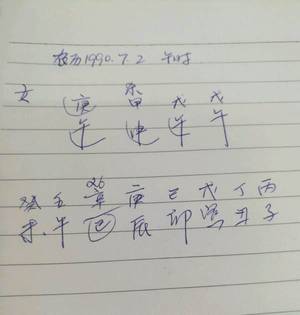 农历1990.7.2 午时
杀
女 庚 甲 戊 戊
午 申 午 午
26
癸 壬 辛 庚 己 戊 丁 丙
未 午 巳 辰 卯 寅 丑 子